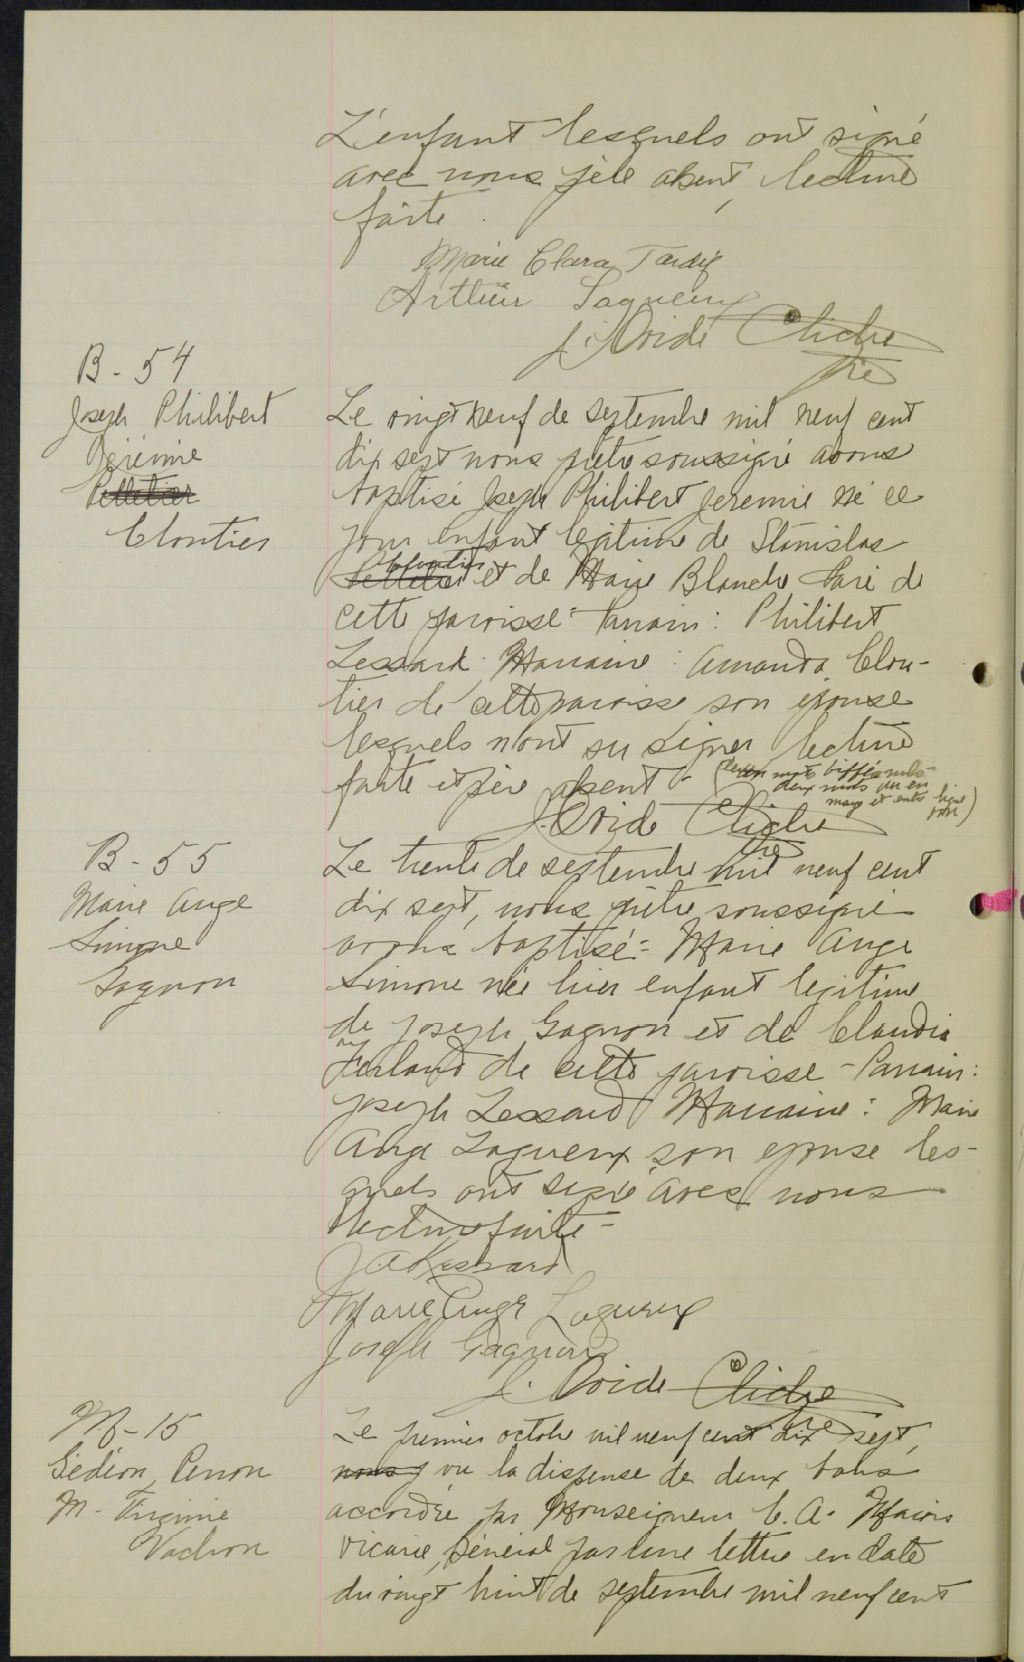 L'enfant lesquels ont signé
avec nous père absent, lecture
faite.
Marie Clara Tardif
Arthur Lagueux
J. Ovide Cliche
Ptre
B - 54
Joseph Philibert
Jérémie
Pelletier
Cloutier
Le vingt neuf de septembre mil neuf cent
dix sept nous prêtre soussigné avons
baptisé Joseph Philibert Jeremie né ce
jour enfant légitime de Stanislas
Cloutier
Pelletier et de Marie Blanche Paré de
cette paroisse - Parrain: Philibert
Lessard. Marraine: Amanda Clou-
tier de cette paroisse son épouse
lesquels n'ont su signer lecture
faite et père absent - (deux mots biffés nuls
deux mots en
marge et entre ligne
bon)
J. Ovide Cliche
Ptre
B - 55
Marie Ange
Simone
Gagnon
Le trente de septembre mil neuf cent
dix sept, nous prêtre soussigné
avons baptisé:- Marie Ange
Simone née hier enfant légitime
de Joseph Gagnon et de Claudia
Ferland de cette paroisse - Parrain:
Joseph Lessard Marraine: Marie
Ange Lagueux son epouse les-
quels ont signé avec nous
lecture faite -
J A Lessard
Marie Ange Lagueux
Joseph Gagnon
J. Ovide Cliche
Ptre
M - 15
Gédéon Perron
M. Virginie
Vachon
Le premier octobre mil neuf cent dix sept,
nous, vu la dispense de deux bans
accordée par Monseigneur C. A. Marois
Vicaire Général par une lettre en date
du vingt huit de septembre mil neuf cent